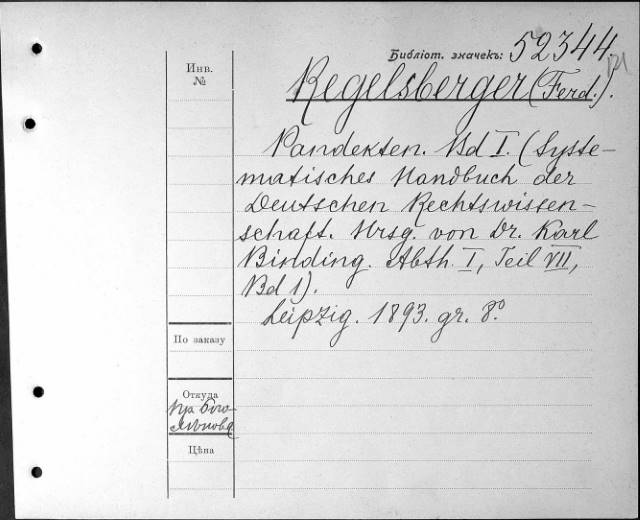 Библіот. значекъ: 52344.
Инв.
№
Regelsberger (Ferd.).
Pandekten. Bd I. (Syste-
matisches Handbuch der
Deutschen Rechtswissen-
schaft. Hrsg. von Dr. Karl
Binding. Abth. I, Teil VII,
Bd 1).
Leipzig. 1893. gr. 8º.
По заказу
Откуда
Цѣна